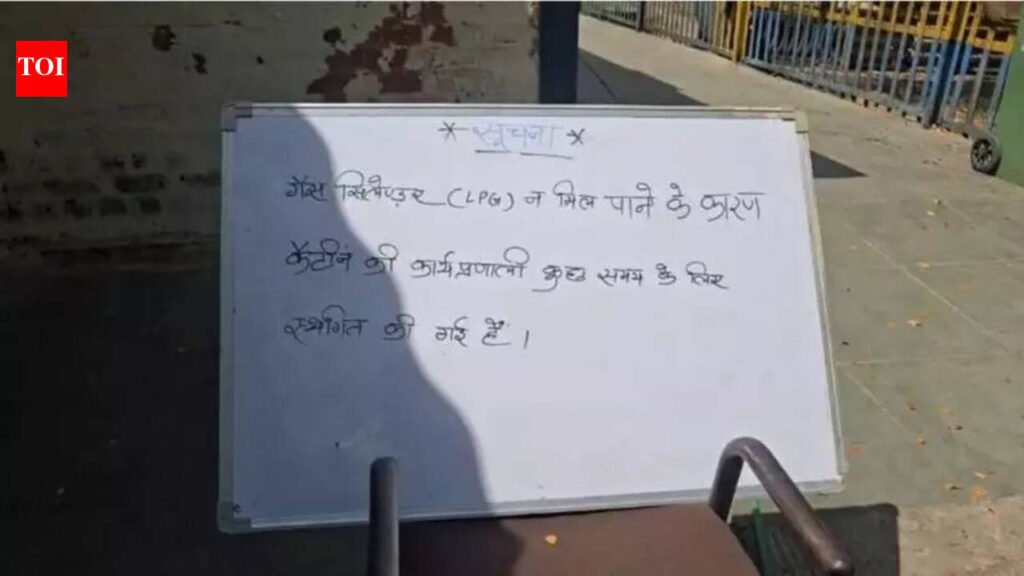 TOI
* सूचना *
गैस सिलेण्ड़र (LPG) न मिल पाने के कारण
कैंटीन की कार्यप्रणाली कुछ समय के लिए
स्थगित की गई हैं।